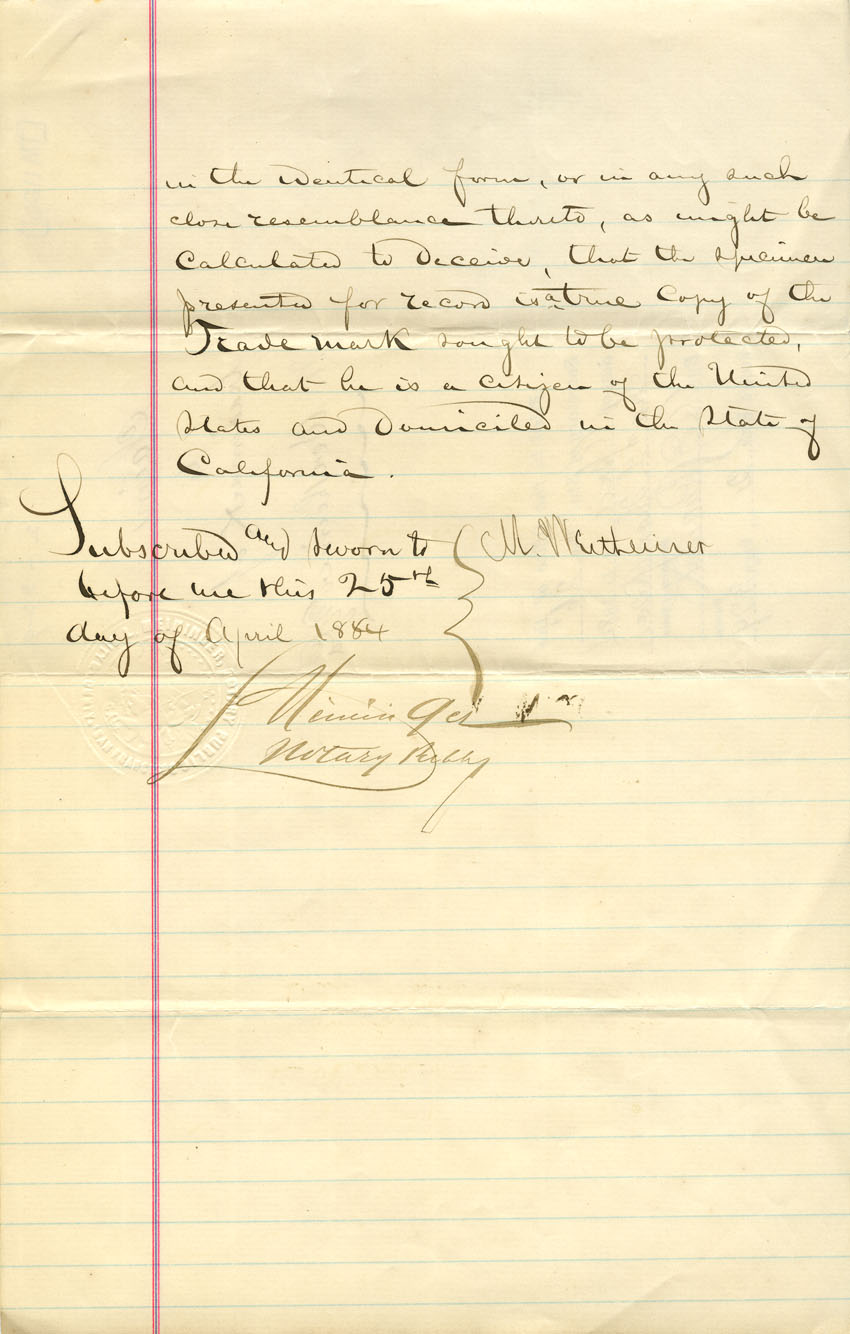 in the identical form, or in any such
close resemblance thereto, as might be
Calculated to Deceive, that the specimen
presented for record is a true Copy of the
Trade mark sought to be protected,
and that he is a citizen of the United
States and Domiciled in the State of
California.
Subscribed and sworn to
before me this 25th
day of April 1884
M. Wertheimer
Notary Public